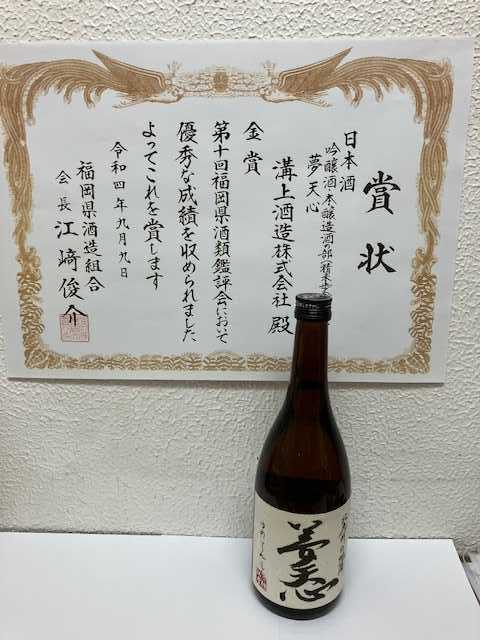 賞状
日本酒
吟醸酒・本醸造酒の部(精米歩
夢天心
溝上酒造株式会社 殿
金賞
第十回福岡県酒類鑑評会において
優秀な成績を収められました
よってこれを賞します
令和四年九月九日
福岡県酒造組合
会長 江﨑俊介
夢天心